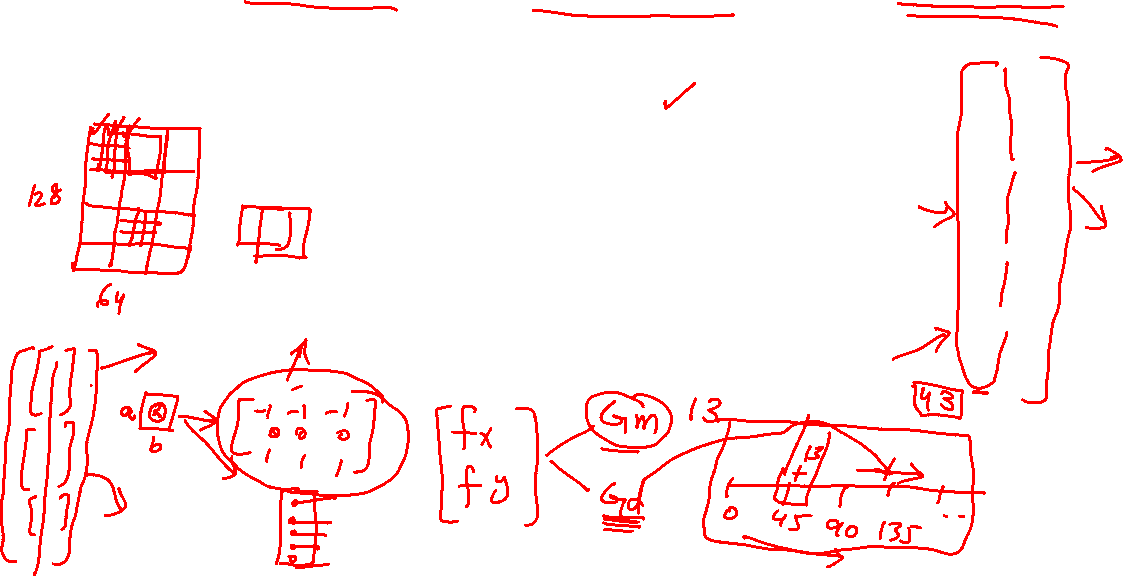 128
64
a
b
-1 -1 -1
0 0 0
1 1 1
fx
fy
Gm
Gd
13
13
+
0 45 90 135 ..
43